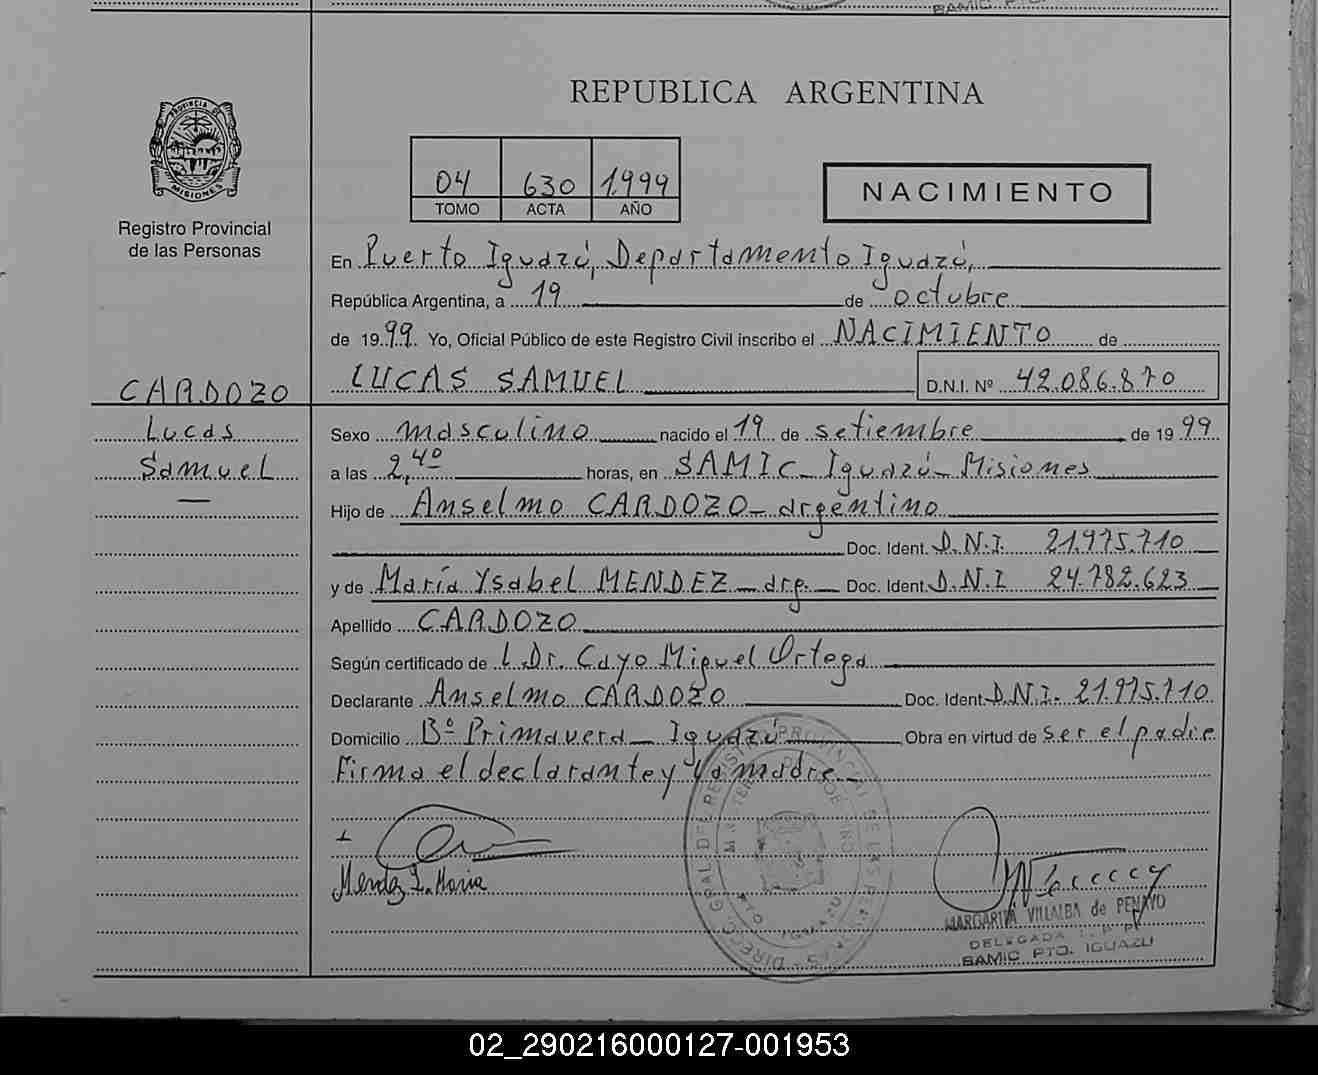 SAMIC PTO.
REPUBLICA ARGENTINA
PROVINCIA DE MISIONES
04 630 1999
TOMO ACTA AÑO
NACIMIENTO
Registro Provincial
de las Personas
En Puerto Iguazú, Departamento Iguazú,
República Argentina, a 19 de octubre
de 1999. Yo, Oficial Público de este Registro Civil inscribo el NACIMIENTO de
LUCAS SAMUEL D.N.I. Nº 42.086.870
CARDOZO
Lucas
Samuel
Sexo masculino nacido el 19 de setiembre de 1999
a las 2,40 horas, en SAMIC - Iguazú - Misiones
Hijo de Anselmo CARDOZO - argentino
Doc. Ident. D.N.I. 21.975.710
y de María Ysabel MENDEZ - arg. - Doc. Ident. D.N.I 24.782.623
Apellido CARDOZO
Según certificado de L Dr. Cayo Miguel Ortega
Declarante Anselmo CARDOZO Doc. Ident. D.N.I. 21.975.710
Domicilio Bº Primavera - Iguazú Obra en virtud de ser el padre
Firma el declarante y la madre -
Mendez Y. Maria
MARGARITA VILLALBA de PENAYO
DELEGADA
SAMIC PTO. IGUAZU
02_290216000127-001953